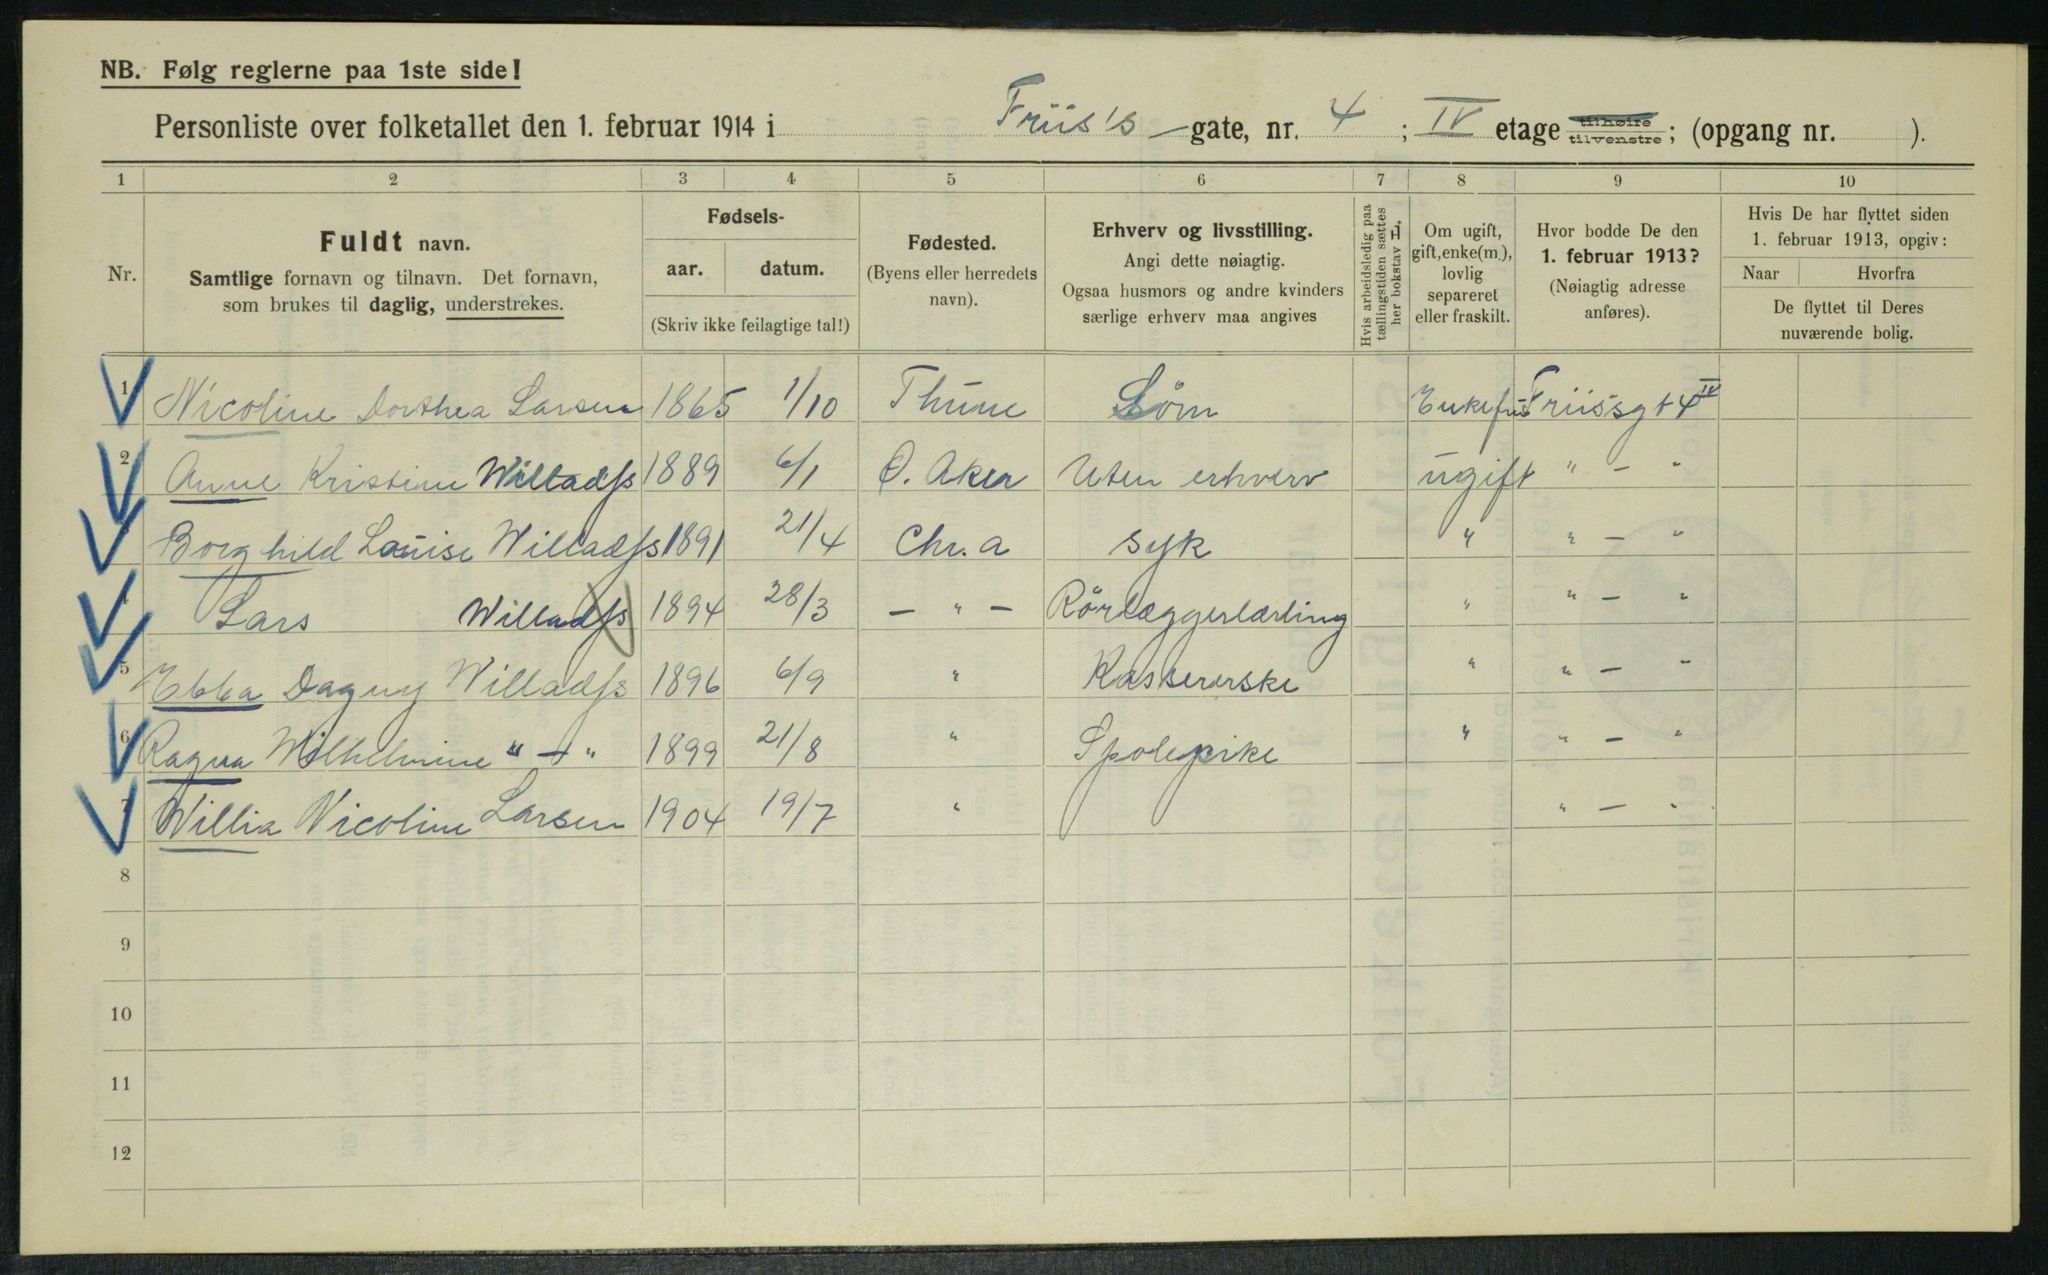 NB. Følg reglerne paa 1ste side!
Personliste over folketallet den 1. februar 1914 i Friis's gate, nr. 4 ; IV etage tilhøire tilvenstre; (opgang nr. ).
1 2 3 4 5 6 7 8 9 10
Nr.
Fuldt navn.
Samtlige fornavn og tilnavn. Det fornavn,
som brukes til daglig, understrekes.
Fødsels-
aar. datum.
(Skriv ikke feilagtige tal!)
Fødested.
(Byens eller herredets
navn).
Erhverv og livsstilling.
Angi dette nøiagtig.
Ogsaa husmors og andre kvinders
særlige erhverv maa angives
Hvis arbeidsledig paa
tællingstiden sættes
her bokstav L,
Om ugift,
gift, enke(m.),
lovlig
separeret
eller fraskilt.
Hvor bodde De den
1. februar 1913?
(Nøiagtig adresse
anføres).
Hvis De har flyttet siden
1. februar 1913, opgiv:
Naar Hvorfra
De flyttet til Deres
nuværende bolig.
1 Nicoline Dorthea Larsen 1865 1/10 Thune Søm Enkefru Friisgt 4 IV
2 Anne Kristine Willadss 1889 6/1 Ø. Aker Uten erhverv ugift " — "
3 Borghild Louise Willadss 1891 21/4 Chr.a syk " " — "
4 Lars Willadss 1894 28/3 — " — Rörlæggerlærling " " — "
5 Ebba Dagny Willadss 1896 6/9 " Kassererske " " — "
6 Ragna Wilhelmine " — " 1899 21/8 " Spolepike " " — "
7 Willia Nicoline Larsen 1904 19/7 " " — "
8
9
10
11
12